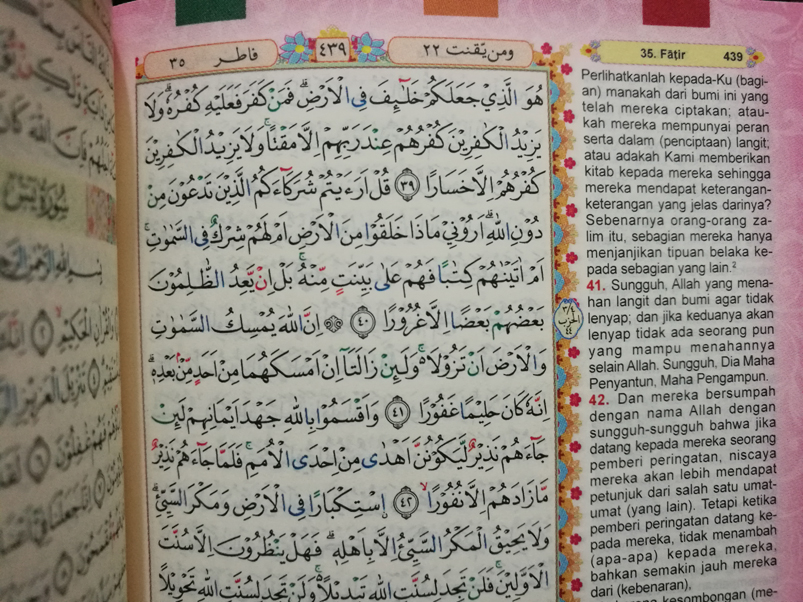 فاطر ٣٥
٤٣٩
ومن يّقنت ٢٢
هُوَ الَّذِيْ جَعَلَكُمْ خَلٰۤىِٕفَ فِى الْاَرْضِۗ فَمَنْ كَفَرَ فَعَلَيْهِ كُفْرُهٗۗ وَلَا
يَزِيْدُ الْكٰفِرِيْنَ كُفْرُهُمْ عِنْدَ رَبِّهِمْ اِلَّا مَقْتًاۚ وَلَا يَزِيْدُ الْكٰفِرِيْنَ
كُفْرُهُمْ اِلَّا خَسَارًا ٣٩ قُلْ اَرَءَيْتُمْ شُرَكَاۤءَكُمُ الَّذِيْنَ تَدْعُوْنَ مِنْ
دُوْنِ اللّٰهِۗ اَرُوْنِيْ مَاذَا خَلَقُوْا مِنَ الْاَرْضِ اَمْ لَهُمْ شِرْكٌ فِى السَّمٰوٰتِۚ
اَمْ اٰتَيْنٰهُمْ كِتٰبًا فَهُمْ عَلٰى بَيِّنَتٍ مِّنْهُۚ بَلْ اِنْ يَّعِدُ الظّٰلِمُوْنَ
بَعْضُهُمْ بَعْضًا اِلَّا غُرُوْرًا ٤٠ ۞ اِنَّ اللّٰهَ يُمْسِكُ السَّمٰوٰتِ
وَالْاَرْضَ اَنْ تَزُوْلَا ۚ وَلَىِٕنْ زَالَتَآ اِنْ اَمْسَكَهُمَا مِنْ اَحَدٍ مِّنْۢ بَعْدِهٖۗ
اِنَّهٗ كَانَ حَلِيْمًا غَفُوْرًا ٤١ وَاَقْسَمُوْا بِاللّٰهِ جَهْدَ اَيْمَانِهِمْ لَىِٕنْ
جَاۤءَهُمْ نَذِيْرٌ لَّيَكُوْنُنَّ اَهْدٰى مِنْ اِحْدَى الْاُمَمِۚ فَلَمَّا جَاۤءَهُمْ نَذِيْرٌ
مَّا زَادَهُمْ اِلَّا نُفُوْرًاۙ ٤٢ اِسْتِكْبَارًا فِى الْاَرْضِ وَمَكْرَ السَّيِّئِۗ
وَلَا يَحِيْقُ الْمَكْرُ السَّيِّئُ اِلَّا بِاَهْلِهٖۗ فَهَلْ يَنْظُرُوْنَ اِلَّا سُنَّتَ
الْاَوَّلِيْنَۚ فَلَنْ تَجِدَ لِسُنَّتِ اللّٰهِ تَبْدِيْلًا ەۚ وَلَنْ تَجِدَ لِسُنَّتِ اللّٰهِ تَحْوِيْلًا
الحزب ٤٤
35. Fāṭir 439
Perlihatkanlah kepada-Ku (bagi-
an) manakah dari bumi ini yang
telah mereka ciptakan; atau-
kah mereka mempunyai peran
serta dalam (penciptaan) langit;
atau adakah Kami memberikan
kitab kepada mereka sehingga
mereka mendapat keterangan-
keterangan yang jelas darinya?
Sebenarnya orang-orang za-
lim itu, sebagian mereka hanya
menjanjikan tipuan belaka ke-
pada sebagian yang lain.²
41. Sungguh, Allah yang mena-
han langit dan bumi agar tidak
lenyap; dan jika keduanya akan
lenyap tidak ada seorang pun
yang mampu menahannya
selain Allah. Sungguh, Dia Maha
Penyantun, Maha Pengampun.
42. Dan mereka bersumpah
dengan nama Allah dengan
sungguh-sungguh bahwa jika
datang kepada mereka seorang
pemberi peringatan, niscaya
mereka akan lebih mendapat
petunjuk dari salah satu umat-
umat (yang lain). Tetapi ketika
pemberi peringatan datang ke-
pada mereka, tidak menambah
(apa-apa) kepada mereka,
bahkan semakin jauh mereka
dari (kebenaran),
kesombongan (me-